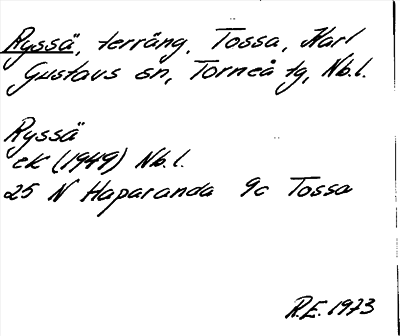 Ryssä, terräng, Tossa, Karl
Gustavs sn, Torneå tg, Nb.l.
Ryssä
ek (1949) Nb.l.
25 N Haparanda 9c Tossa
R.E. 1973